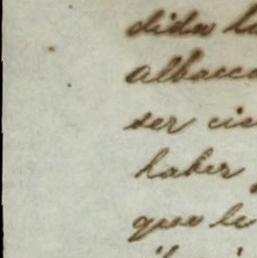 dida la
albacea
ser cie
haber
que le